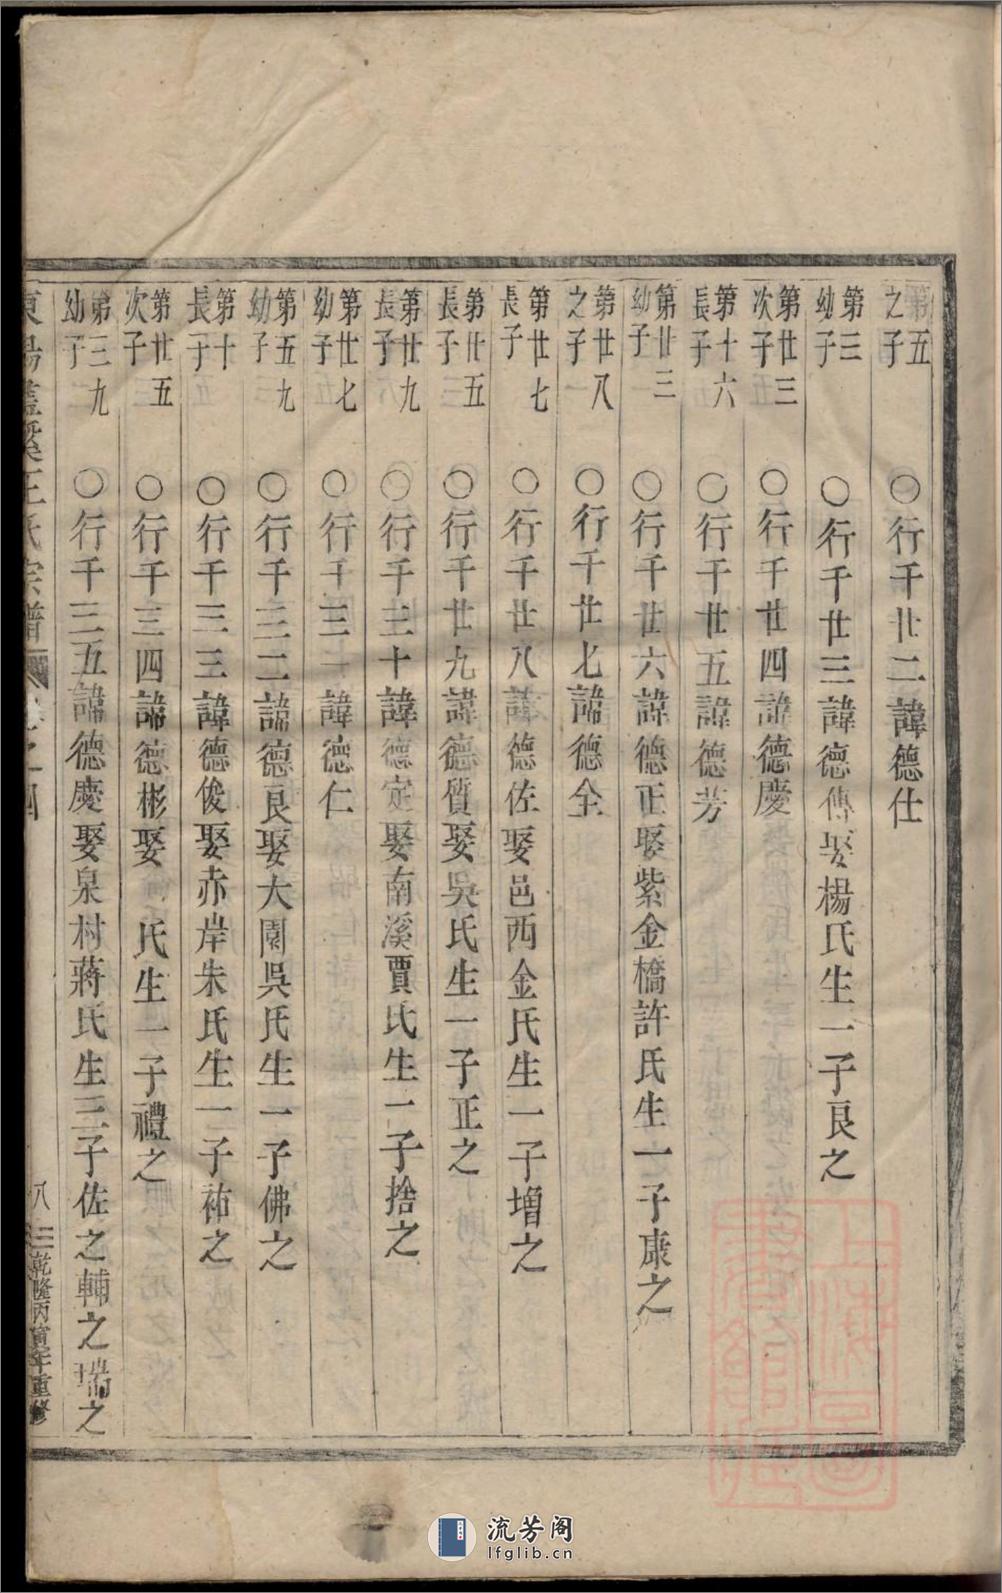 第五之子 ○行千廿二諱德仕
第三幼子 ○行千廿三諱德傳娶楊氏生一子良之
第廿三次子 ○行千廿四諱德慶
第十六長子 ○行千廿五諱德芳
第廿三幼子 ○行千廿六諱德正娶紫金橋許氏生一子康之
第廿八之子 ○行千廿七諱德全
第廿七長子 ○行千廿八諱德佐娶邑西金氏生一子增之
第廿五長子 ○行千廿九諱德質娶吳氏生一子正之
第廿九長子 ○行千三十諱德定娶南溪賈氏生一子捨之
第廿七幼子 ○行千三十一諱德仁
第五九幼子 ○行千三二諱德良娶大園吳氏生一子佛之
第十長子 ○行千三三諱德俊娶赤岸朱氏生一子祐之
第廿五次子 ○行千三四諱德彬娶 氏生一子禮之
第三九幼子 ○行千三五諱德慶娶泉村蔣氏生三子佐之輔之瑞之
東陽 王氏宗譜 之四 八 三 乾隆丙寅年重修
上海圖書館藏
流芳阁
lfglib.cn